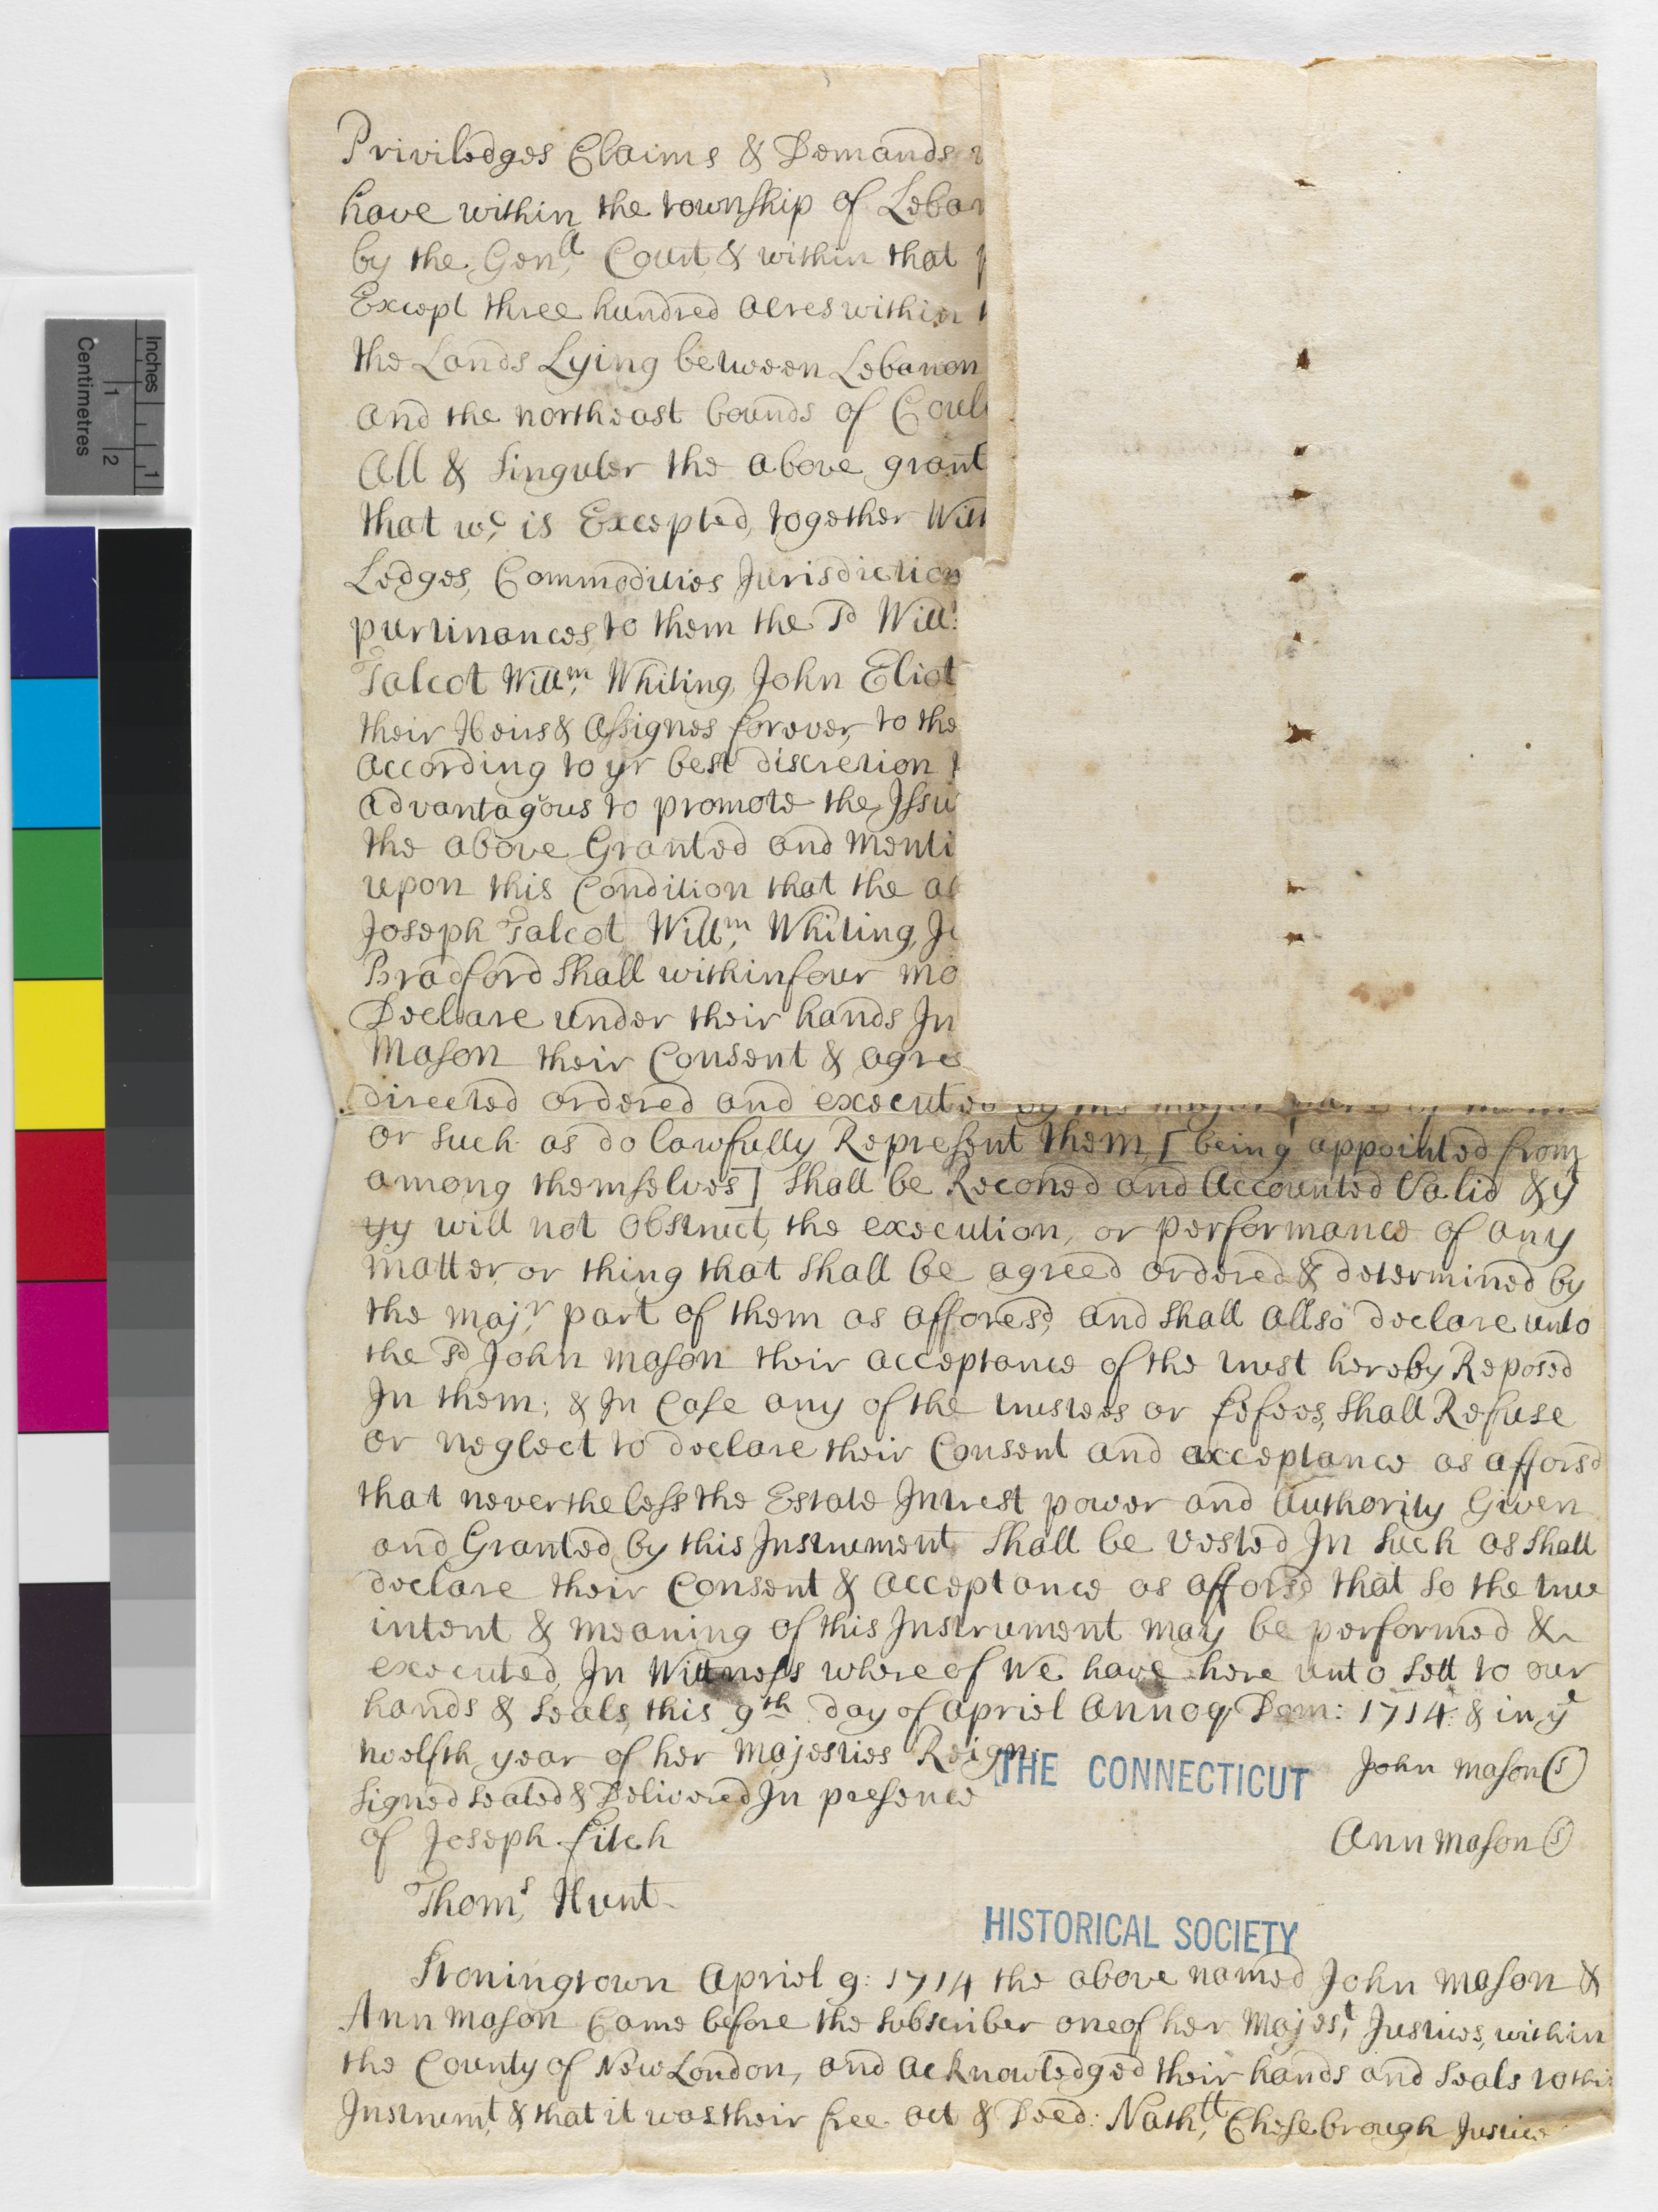 Priviledges Claims & Demands
have within the township of Leban
by the Genll Court & within that
Except three hundred acres within
the Lands Lying between Lebanon
and the northeast bounds of
All & Singuler the above grant
that wc is Excepted, together With
Ledges, Commodities Jurisdiction
purtinances, to them the sd Will:
Talcot Willm, Whiting, John Eliot
their Heirs & Assignes forever, to the
according to yr best discretion
advantagous to promote the Issu
the above Granted and Menti
upon this Condition that the
Joseph Talcot Willm, Whiting,
Bradford Shall within four mo
Declare under their hands In
Mason their Consent & agree
directed ordered and executed by the major part of
or Such as do lawfully Represent them, [being appointed from
among themselves] Shall be Reconed and Accounted Valid & yt
yy will not obstruct, the execution, or performance of any
matter, or thing that Shall be agreed ordered & determined by
the majr, part of them as afforesd, and Shall allso declare unto
the sd John Mason their acceptance of the trust hereby Reposed
In them; & In Case any of the trustees or fefees, Shall Refuse
or neglect to declare their Consent and acceptance as afforsd
that nevertheless the Estate Intrest power and Authority Given
and Granted, by this Instrument Shall be vested In Such as Shall
declare their Consent & acceptance as afforsd that So the true
intent & meaning of this Instrument may be performed &
executed, In Wittness whereof We have here unto Sett to our
hands & Seals, this 9th day of Apriel Annoq Dom: 1714: & in ye
twelfth year of her Majesties Reign.
THE CONNECTICUT
John Mason (s)
Signed Sealed & Delivered In presence
of Joseph fitch
Ann Mason (s)
Thoms, Hunt
HISTORICAL SOCIETY
Stoningtown Apriel 9: 1714 the above named John Mason &
Ann Mason Came before the Subscriber one of her Majest, Justices, within
the County of New London, and acknowledged their hands and Seals to this
Instrumt, & that it was their free act & Deed: Nathll, Chesebrough Justice